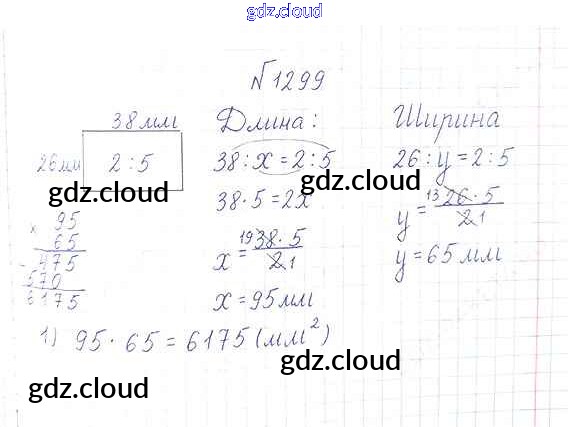 gdz.cloud
№1299
38мм
26мм 2 : 5
Длина:
38 : x = 2 : 5
38 · 5 = 2x
x = 19 38 · 5 / 2 1
x = 95мм
Ширина
26 : y = 2 : 5
y = 13 26 · 5 / 2 1
y = 65мм
× 95
65
475
570
6175
1) 95 · 65 = 6175 (мм²)
gdz.cloud
gdz.cloud
gdz.cloud
gdz.cloud
gdz.cloud